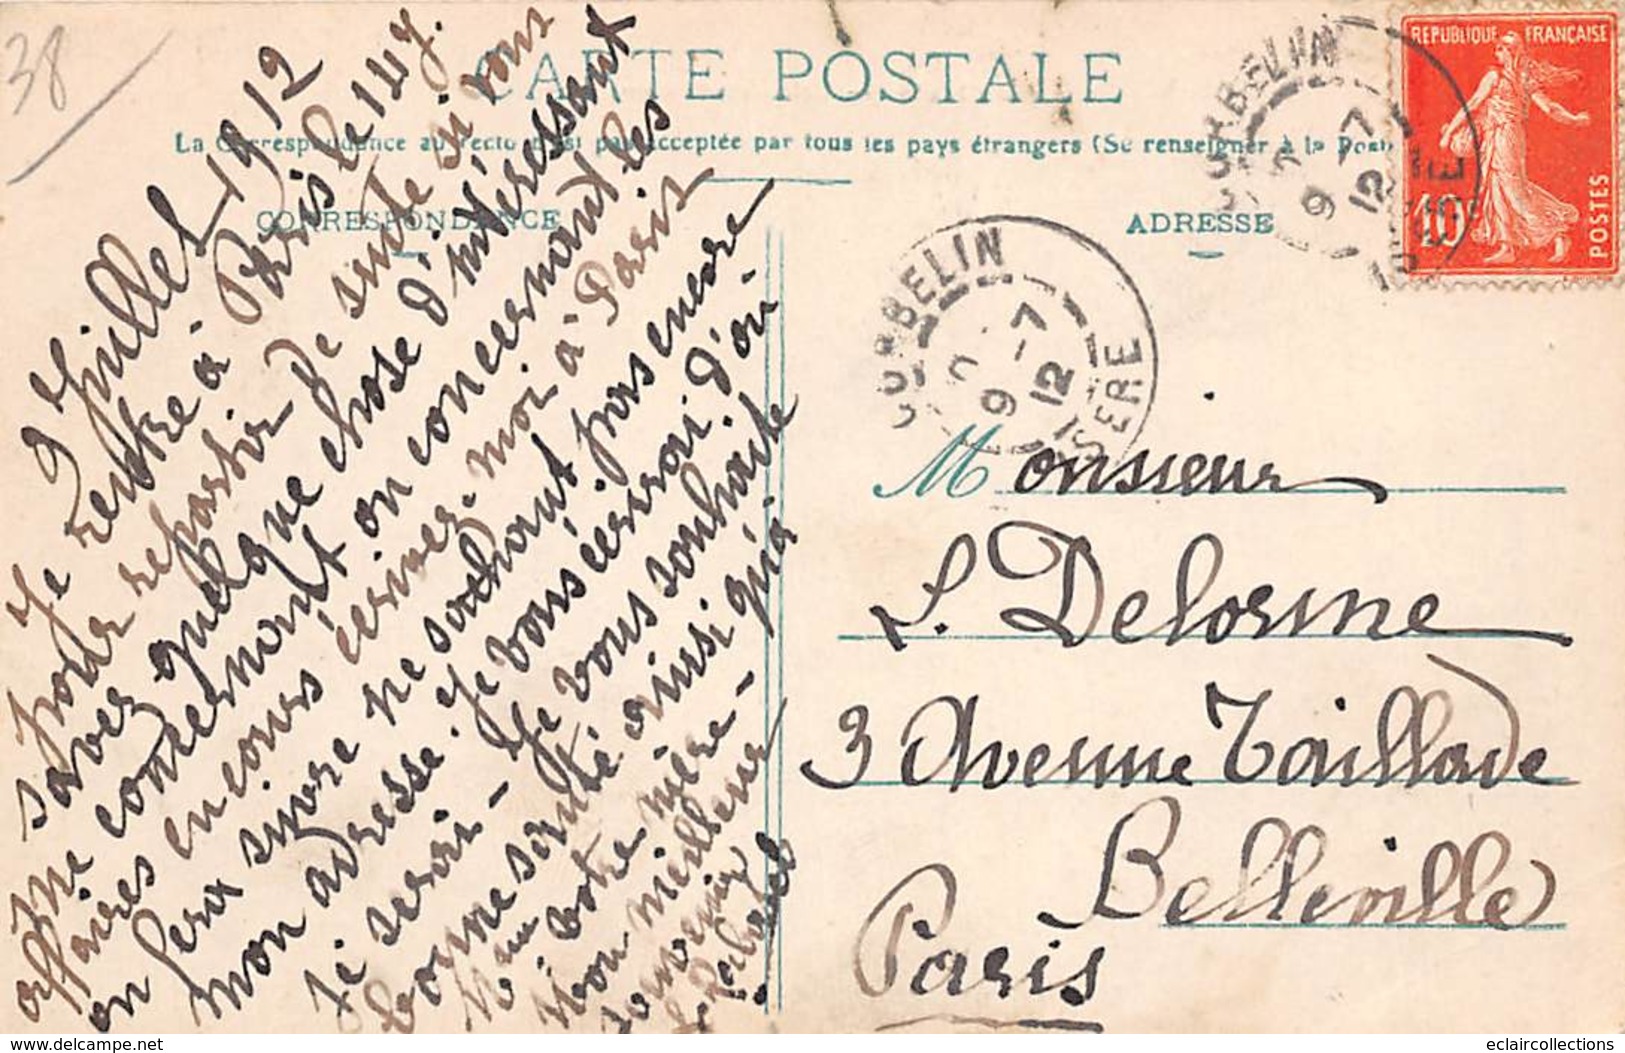 38
CARTE POSTALE
La Correspondance au recto n'est pas acceptée par tous les pays étrangers (Se renseigner à la Poste
CORRESPONDANCE
ADRESSE
9 Juillet 1912
Je rentre à Paris le 14 J.
pour repartir de suite si vous
savez quelque chose d'intéressant
me concernant ou concernant les
affaires en cours écrivez-moi à Paris
on fera suivre ne sachant pas encore
mon adresse. Je vous écrirai d'où
je serai - Je vous souhaite
bonne santé ainsi qu'à
votre mère -
mon meilleur
souvenir
CORBELIN
9 -7
12
ISERE
CORBELIN
9 -7
12
ISERE
REPUBLIQUE FRANÇAISE
10
POSTES
Monsieur
L. Delorme
3 Avenue Taillade
Belleville
Paris
delcampe.net
eclaircollections